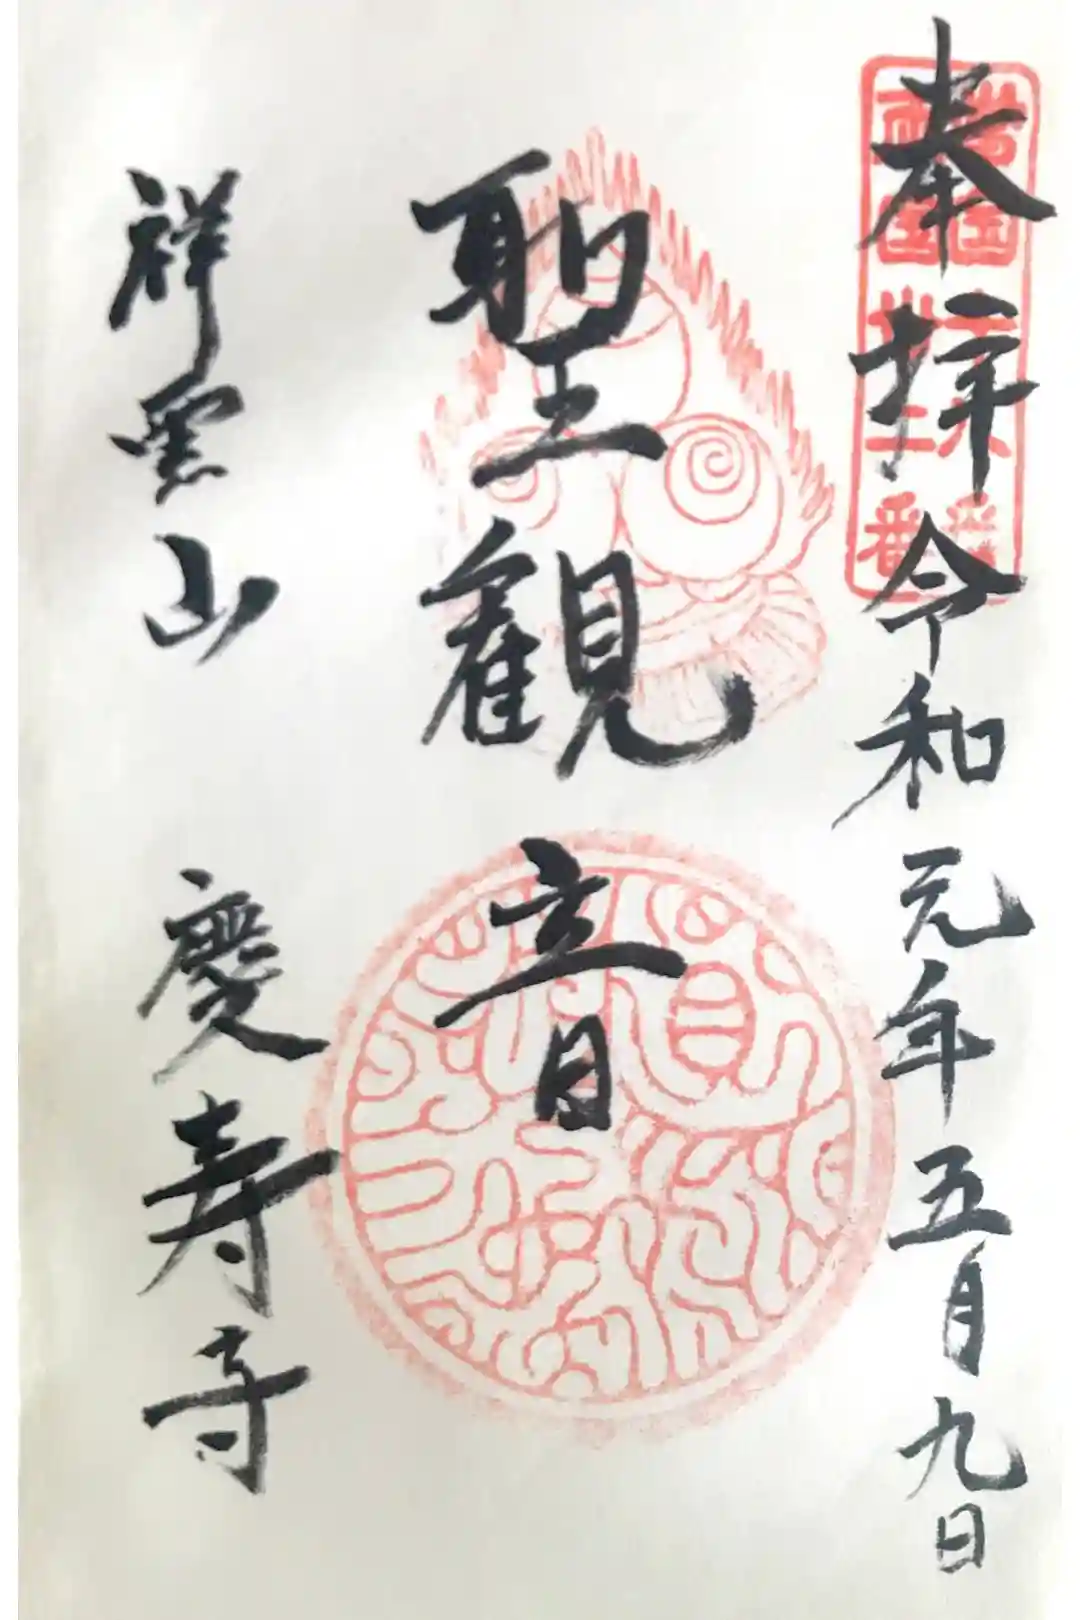 奉拝 令和元年五月九日
聖観音
祥雲山 慶寿寺